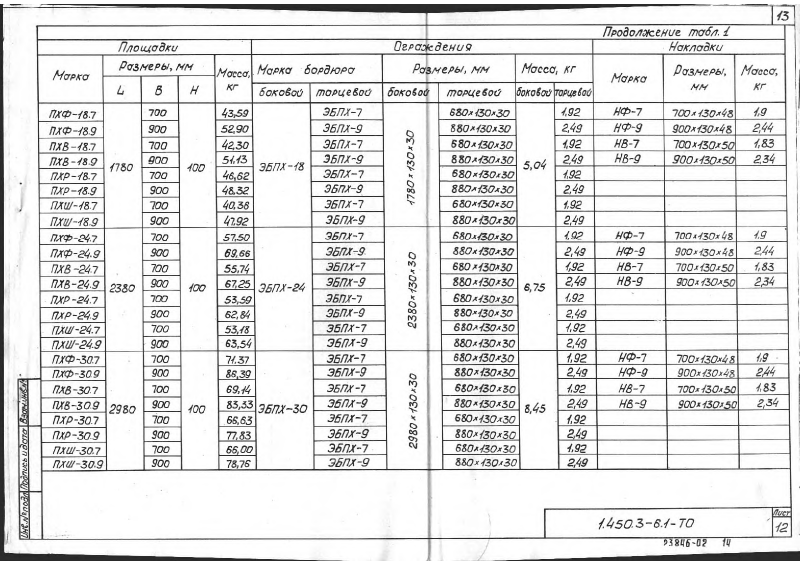 13
Продолжение табл. 1
Площадки Ограждения Накладки
Марка Размеры, мм Масса, кг Марка бордюра Размеры, мм Масса, кг Марка Размеры, мм Масса, кг
L B H боковой торцевой боковой торцевой боковой торцевой
ПХФ-18.7 700 43,59 ЭБПХ-7 680×130×30 1,92 НФ-7 700×130×48 1,9
ПХФ-18.9 900 52,90 ЭБПХ-9 880×130×30 2,49 НФ-9 900×130×48 2,44
ПХВ-18.7 700 42,30 ЭБПХ-7 680×130×30 1,92 НВ-7 700×130×50 1,83
ПХВ-18.9 1780 900 100 51,13 ЭБПХ-18 ЭБПХ-9 1780×130×30 880×130×30 5,04 2,49 НВ-9 900×130×50 2,34
ПХР-18.7 700 46,62 ЭБПХ-7 680×130×30 1,92
ПХР-18.9 900 48,32 ЭБПХ-9 880×130×30 2,49
ПХШ-18.7 700 40,38 ЭБПХ-7 680×130×30 1,92
ПХШ-18.9 900 47,92 ЭБПХ-9 880×130×30 2,49
ПХФ-24.7 700 57,50 ЭБПХ-7 680×130×30 1,92 НФ-7 700×130×48 1,9
ПХФ-24.9 900 69,66 ЭБПХ-9 880×130×30 2,49 НФ-9 900×130×48 2,44
ПХВ-24.7 700 55,74 ЭБПХ-7 680×130×30 1,92 НВ-7 700×130×50 1,83
ПХВ-24.9 2380 900 100 67,25 ЭБПХ-24 ЭБПХ-9 2380×130×30 880×130×30 6,75 2,49 НВ-9 900×130×50 2,34
ПХР-24.7 700 53,59 ЭБПХ-7 680×130×30 1,92
ПХР-24.9 900 62,84 ЭБПХ-9 880×130×30 2,49
ПХШ-24.7 700 53,18 ЭБПХ-7 680×130×30 1,92
ПХШ-24.9 900 63,54 ЭБПХ-9 880×130×30 2,49
ПХФ-30.7 700 71,37 ЭБПХ-7 680×130×30 1,92 НФ-7 700×130×48 1,9
ПХФ-30.9 900 86,39 ЭБПХ-9 880×130×30 2,49 НФ-9 900×130×48 2,44
ПХВ-30.7 700 69,14 ЭБПХ-7 680×130×30 1,92 НВ-7 700×130×50 1,83
ПХВ-30.9 2980 900 100 83,33 ЭБПХ-30 ЭБПХ-9 2980×130×30 880×130×30 8,45 2,49 НВ-9 900×130×50 2,34
ПХР-30.7 700 66,63 ЭБПХ-7 680×130×30 1,92
ПХР-30.9 900 77,83 ЭБПХ-9 880×130×30 2,49
ПХШ-30.7 700 66,00 ЭБПХ-7 680×130×30 1,92
ПХШ-30.9 900 78,76 ЭБПХ-9 880×130×30 2,49
Инв.№подл. Подпись и дата Взам.инв.№
1.450.3-6.1-ТО
Лист
12
23846-02 14